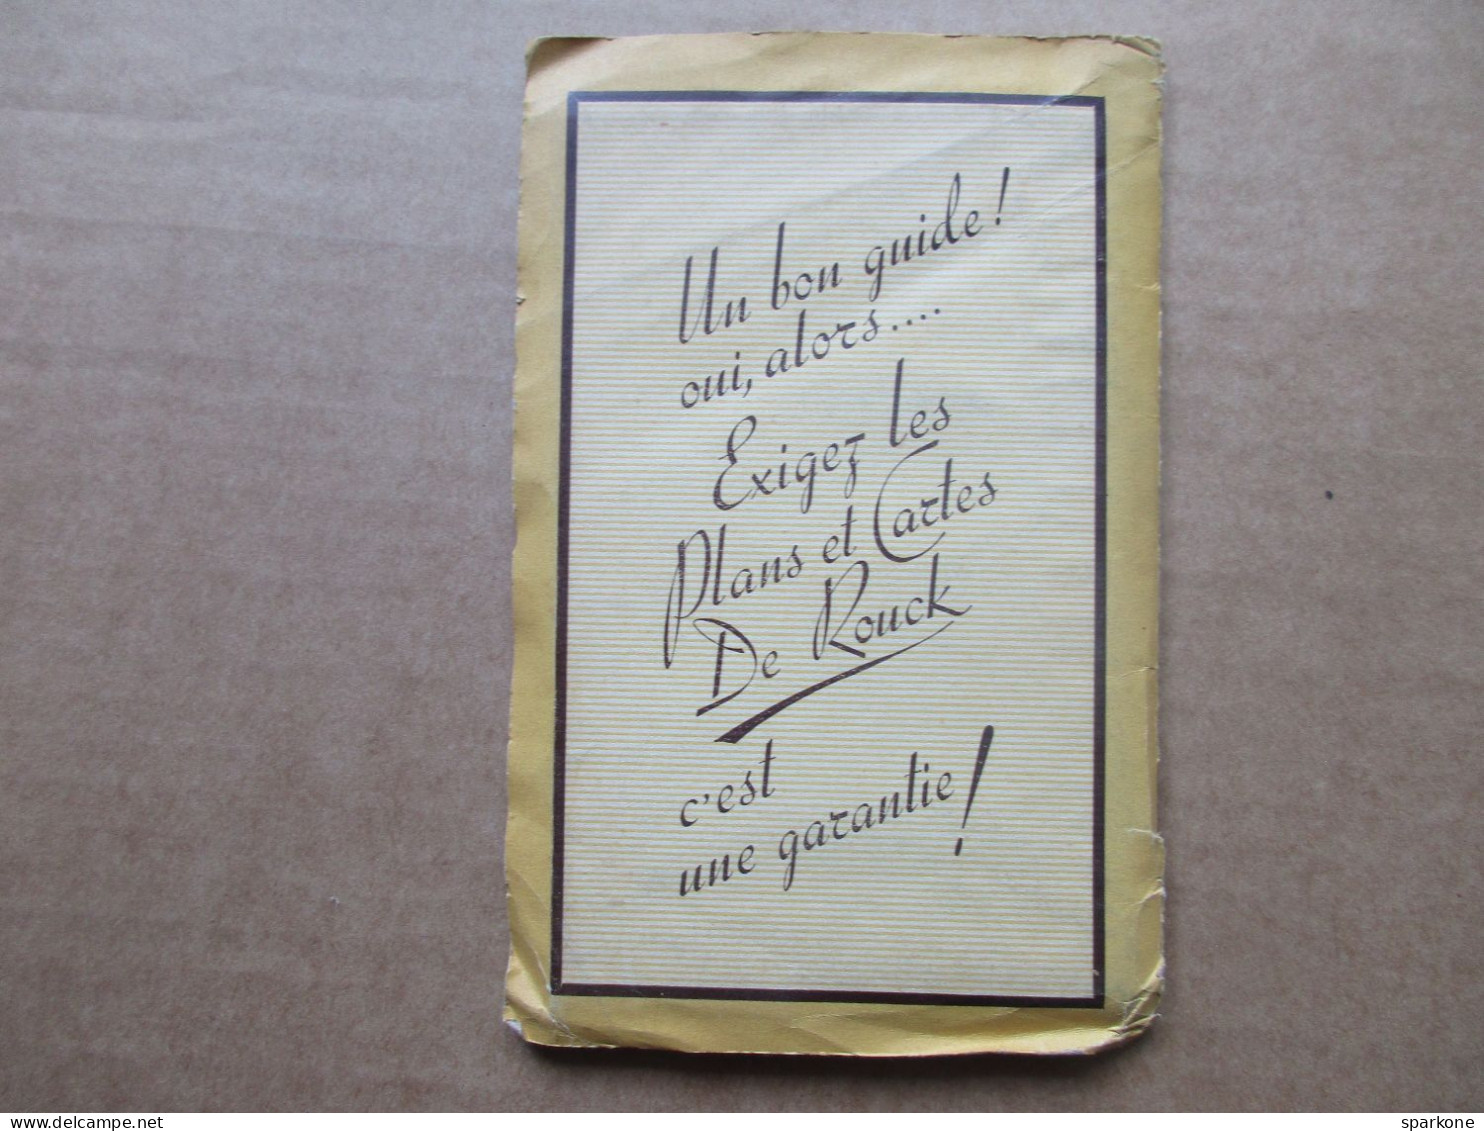 Un bon guide!
oui, alors....
Exigez les
Plans et Cartes
De Rouck
c'est
une garantie!
delcampe.net
sparkone